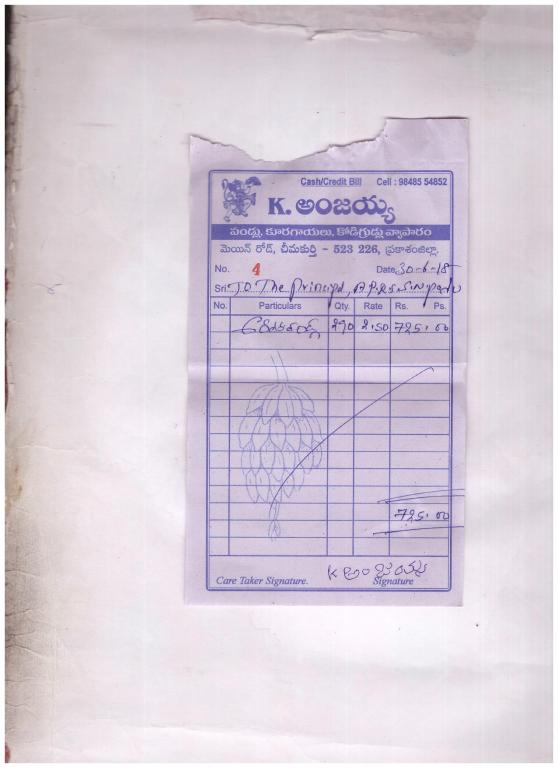 Cash/Credit Bill Cell : 98485 54852
K. అంజయ్య
పండ్లు, కూరగాయలు, కోడిగ్రుడ్లు వ్యాపారం
మెయిన్ రోడ్, చీమకుర్తి - 523 226, ప్రకాశంజిల్లా.
No. 4 Date. 30-6-18
Sri. TO The Principal, A.P.R.S
No. Particulars Qty. Rate Rs. Ps.
290 2.50 725.00
725.00
K అంజయ్య
Care Taker Signature. Signature